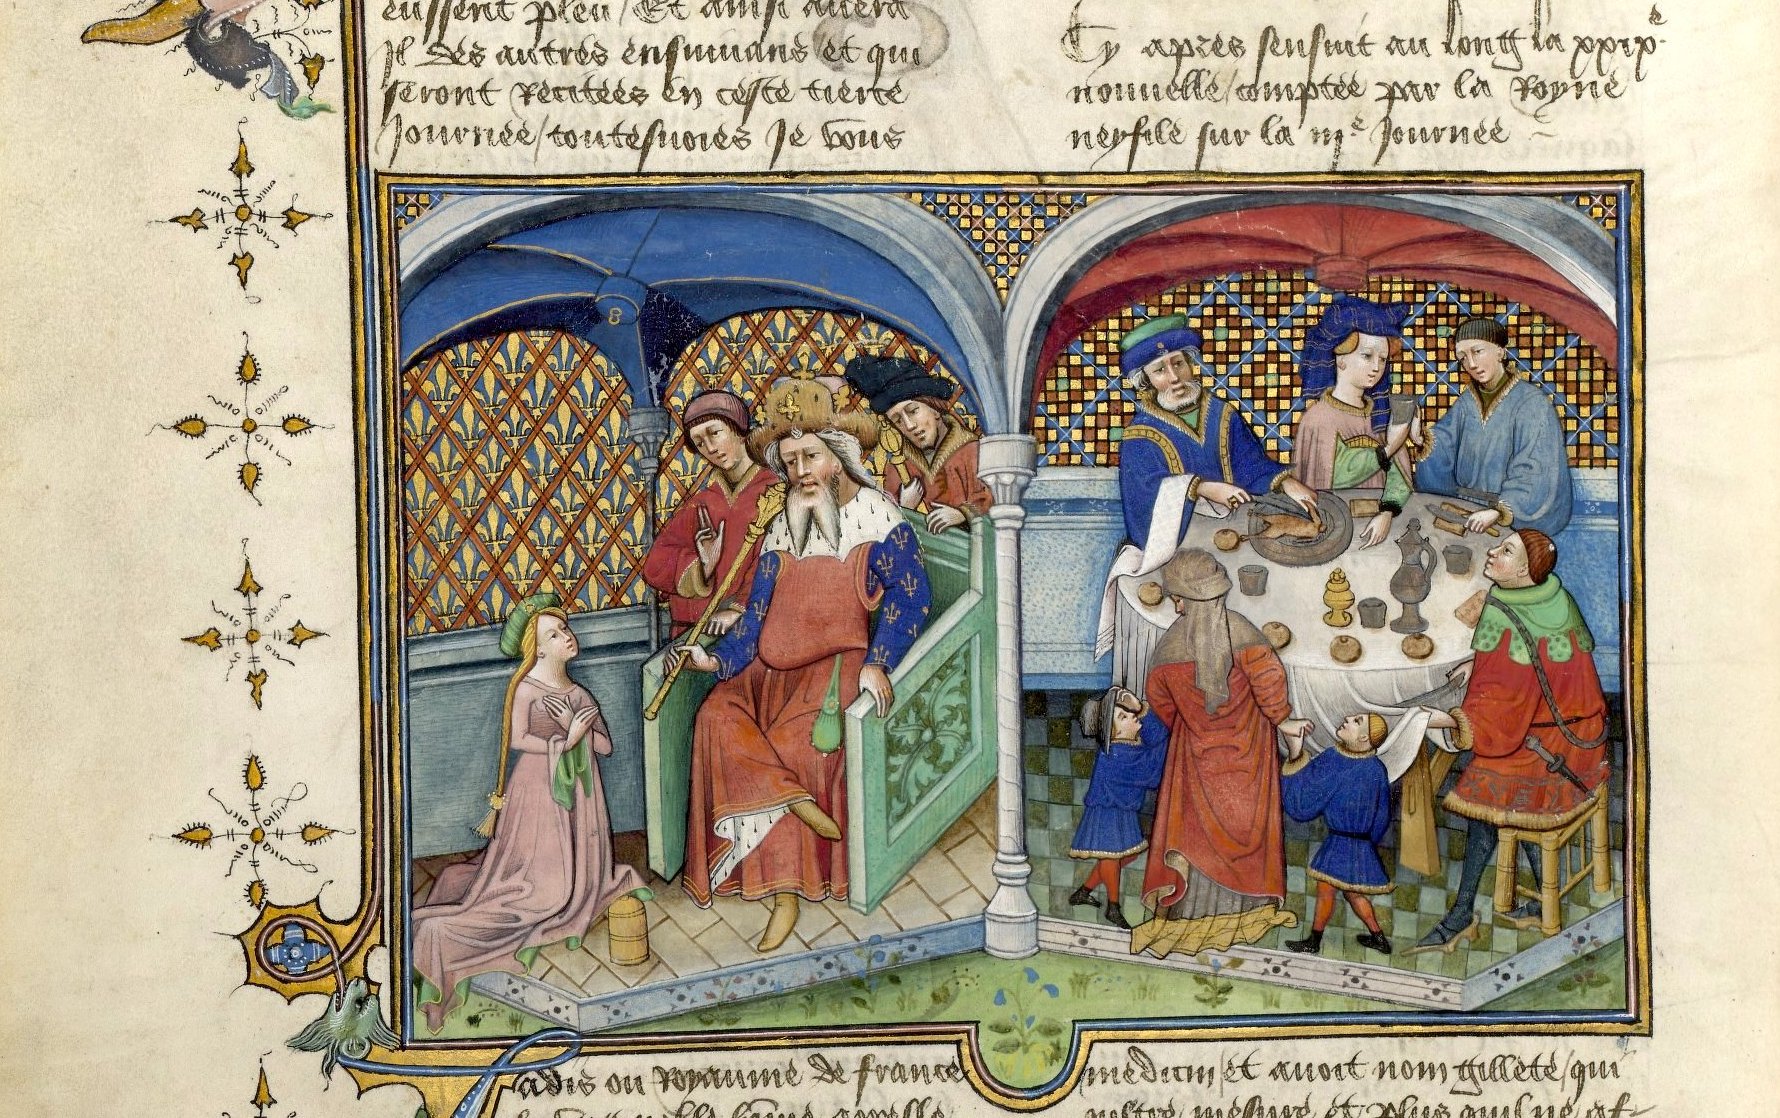 eussent pleu / Et ainsi auera
Il des autres ensuiuans et qui
seront Recitees en ceste tierce
Journee / toutesuoies Je vous
Cy apres sensuit au long la xxixe.
nouuelle / comptee par la Royne
neyfile sur la iije Journee
adis ou Royaume de france
medicin / et auoit nom gillete / qui